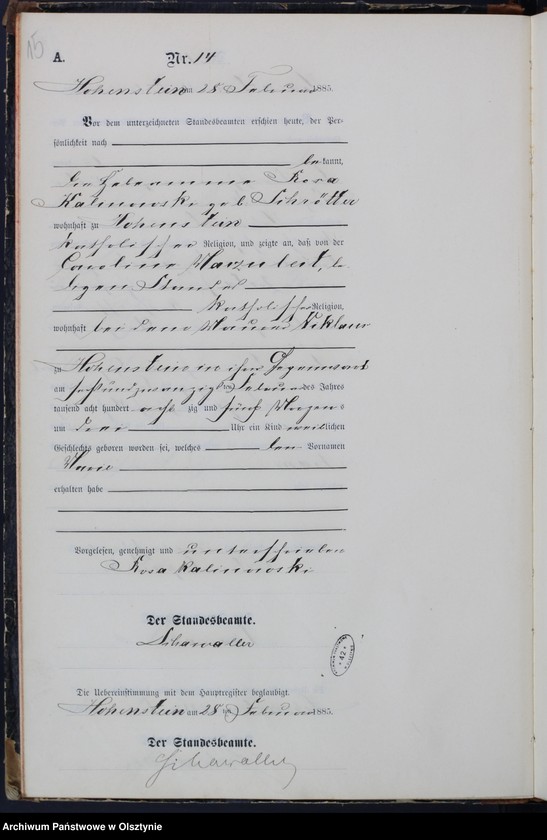 15
A.
Nr. 14
Hohenstein am 28 Februar 1885.
Vor dem unterzeichneten Standesbeamten erschien heute, der Per-
sönlichkeit nach
bekannt,
die Hebeamme Rosa
Kalinowski geb Schrötter
wohnhaft zu Hohenstein
katholischer Religion, und zeigte an, daß von der
Caroline
ligen Standes
katholischer Religion,
wohnhaft bei dem Maurer
zu Hohenstein in ihrer Gegenwart
am sechsundzwanzigsten Februar des Jahres
tausend acht hundert achtzig und fünf Morgens
um drei Uhr ein Kind weiblichen
Geschlechts geboren worden sei, welches den Vornamen
Marie
erhalten habe
Vorgelesen, genehmigt und unterschrieben
Rosa Kalinowski
Der Standesbeamte.
Die Uebereinstimmung mit dem Hauptregister beglaubigt.
Hohenstein am 28 ten Februar 1885.
Der Standesbeamte.
Archiwum Państwowe w Olsztynie